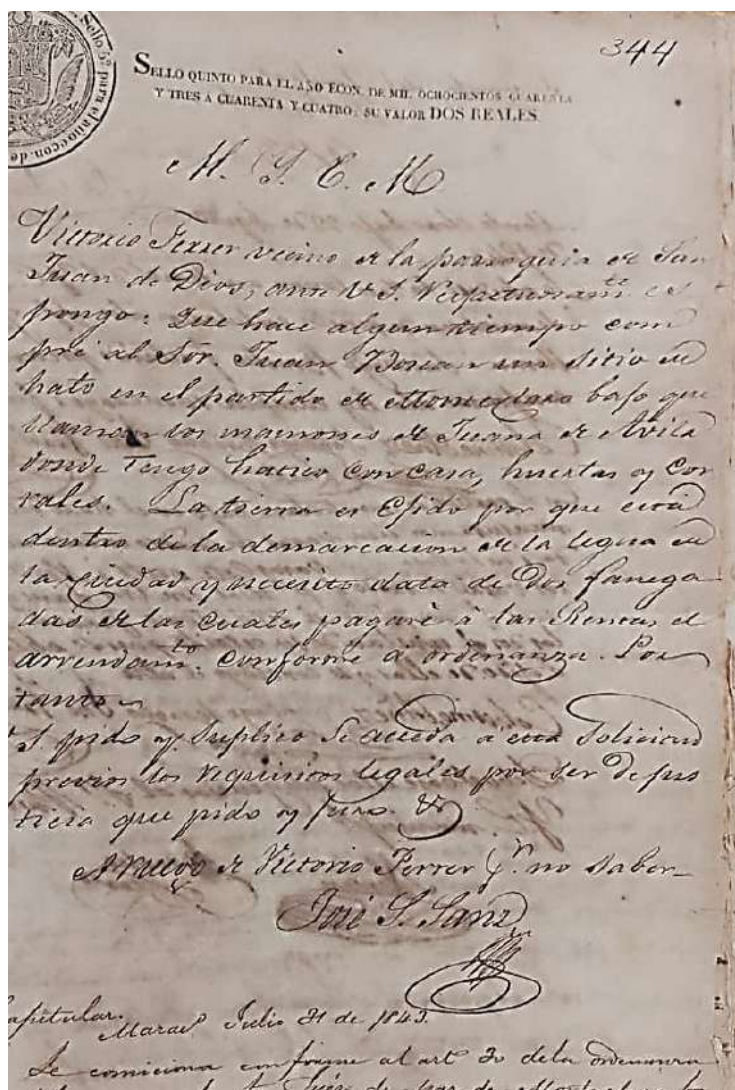 344
Sello 5º para el año econ. de
SELLO QUINTO PARA EL AÑO ECON. DE MIL OCHOCIENTOS CUARENTA
Y TRES A CUARENTA Y CUATRO; SU VALOR DOS REALES
M. I. C. M
Victorio Ferrer vecino de la parroquia de San
Juan de Dios, ante V.S. respetuosamte es
pongo: Que hace algun tiempo com
pré al Sor. Juan un sitio de
hato en el partido de bajo que
llaman los mamones de Juana de Avila
donde tengo hatico con casa, huertas y cor
rales. La tierra es Egido por que está
dentro de la demarcacion de la legua de
la Ciudad y necesito data de dos fanega
das de las cuales pagaré á las Rentas el
arrendamto. conforme á ordenanza. Por
tanto
S. pido y suplico se acceda á esta solicitud
previos los requisitos legales por ser de jus
ticia que pido y juro. &
A ruego de Victorio Ferrer pr. no saber
José S. Sanz
Capitular.
Marac Julio 31 de 1843.
Se comiciona conforme al artº 3º de la ordenanza